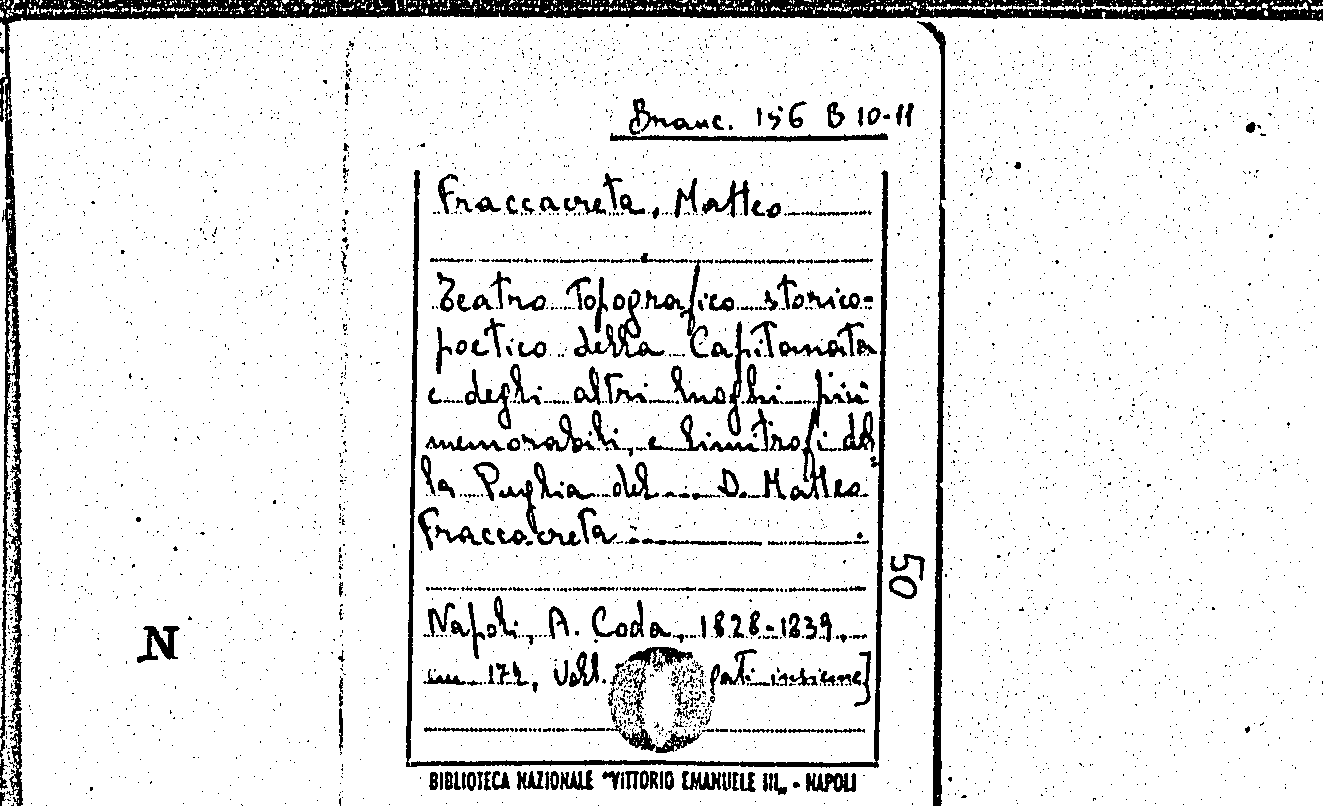 Branc. 156 B 10-11
Fraccacreta, Matteo
Teatro topografico storico-
poetico della Capitanata
e degli altri luoghi più
memorabili, e limitrofi del=
la Puglia del .... D. Matteo
Fraccacreta
50
Napoli, A. Coda, 1828-1839.
N
in 172, Voll. pati insieme]
BIBLIOTECA NAZIONALE "VITTORIO EMANUELE III„ - NAPOLI